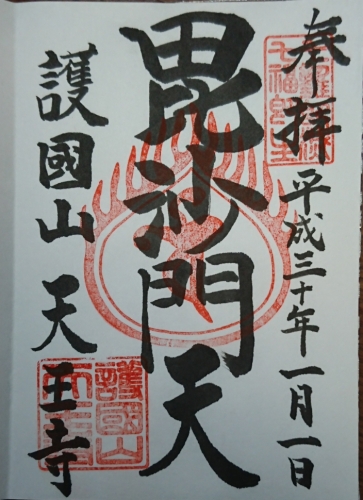 奉拝
平成三十年一月一日
毘沙門天
護國山
天王寺
護國山
天王寺